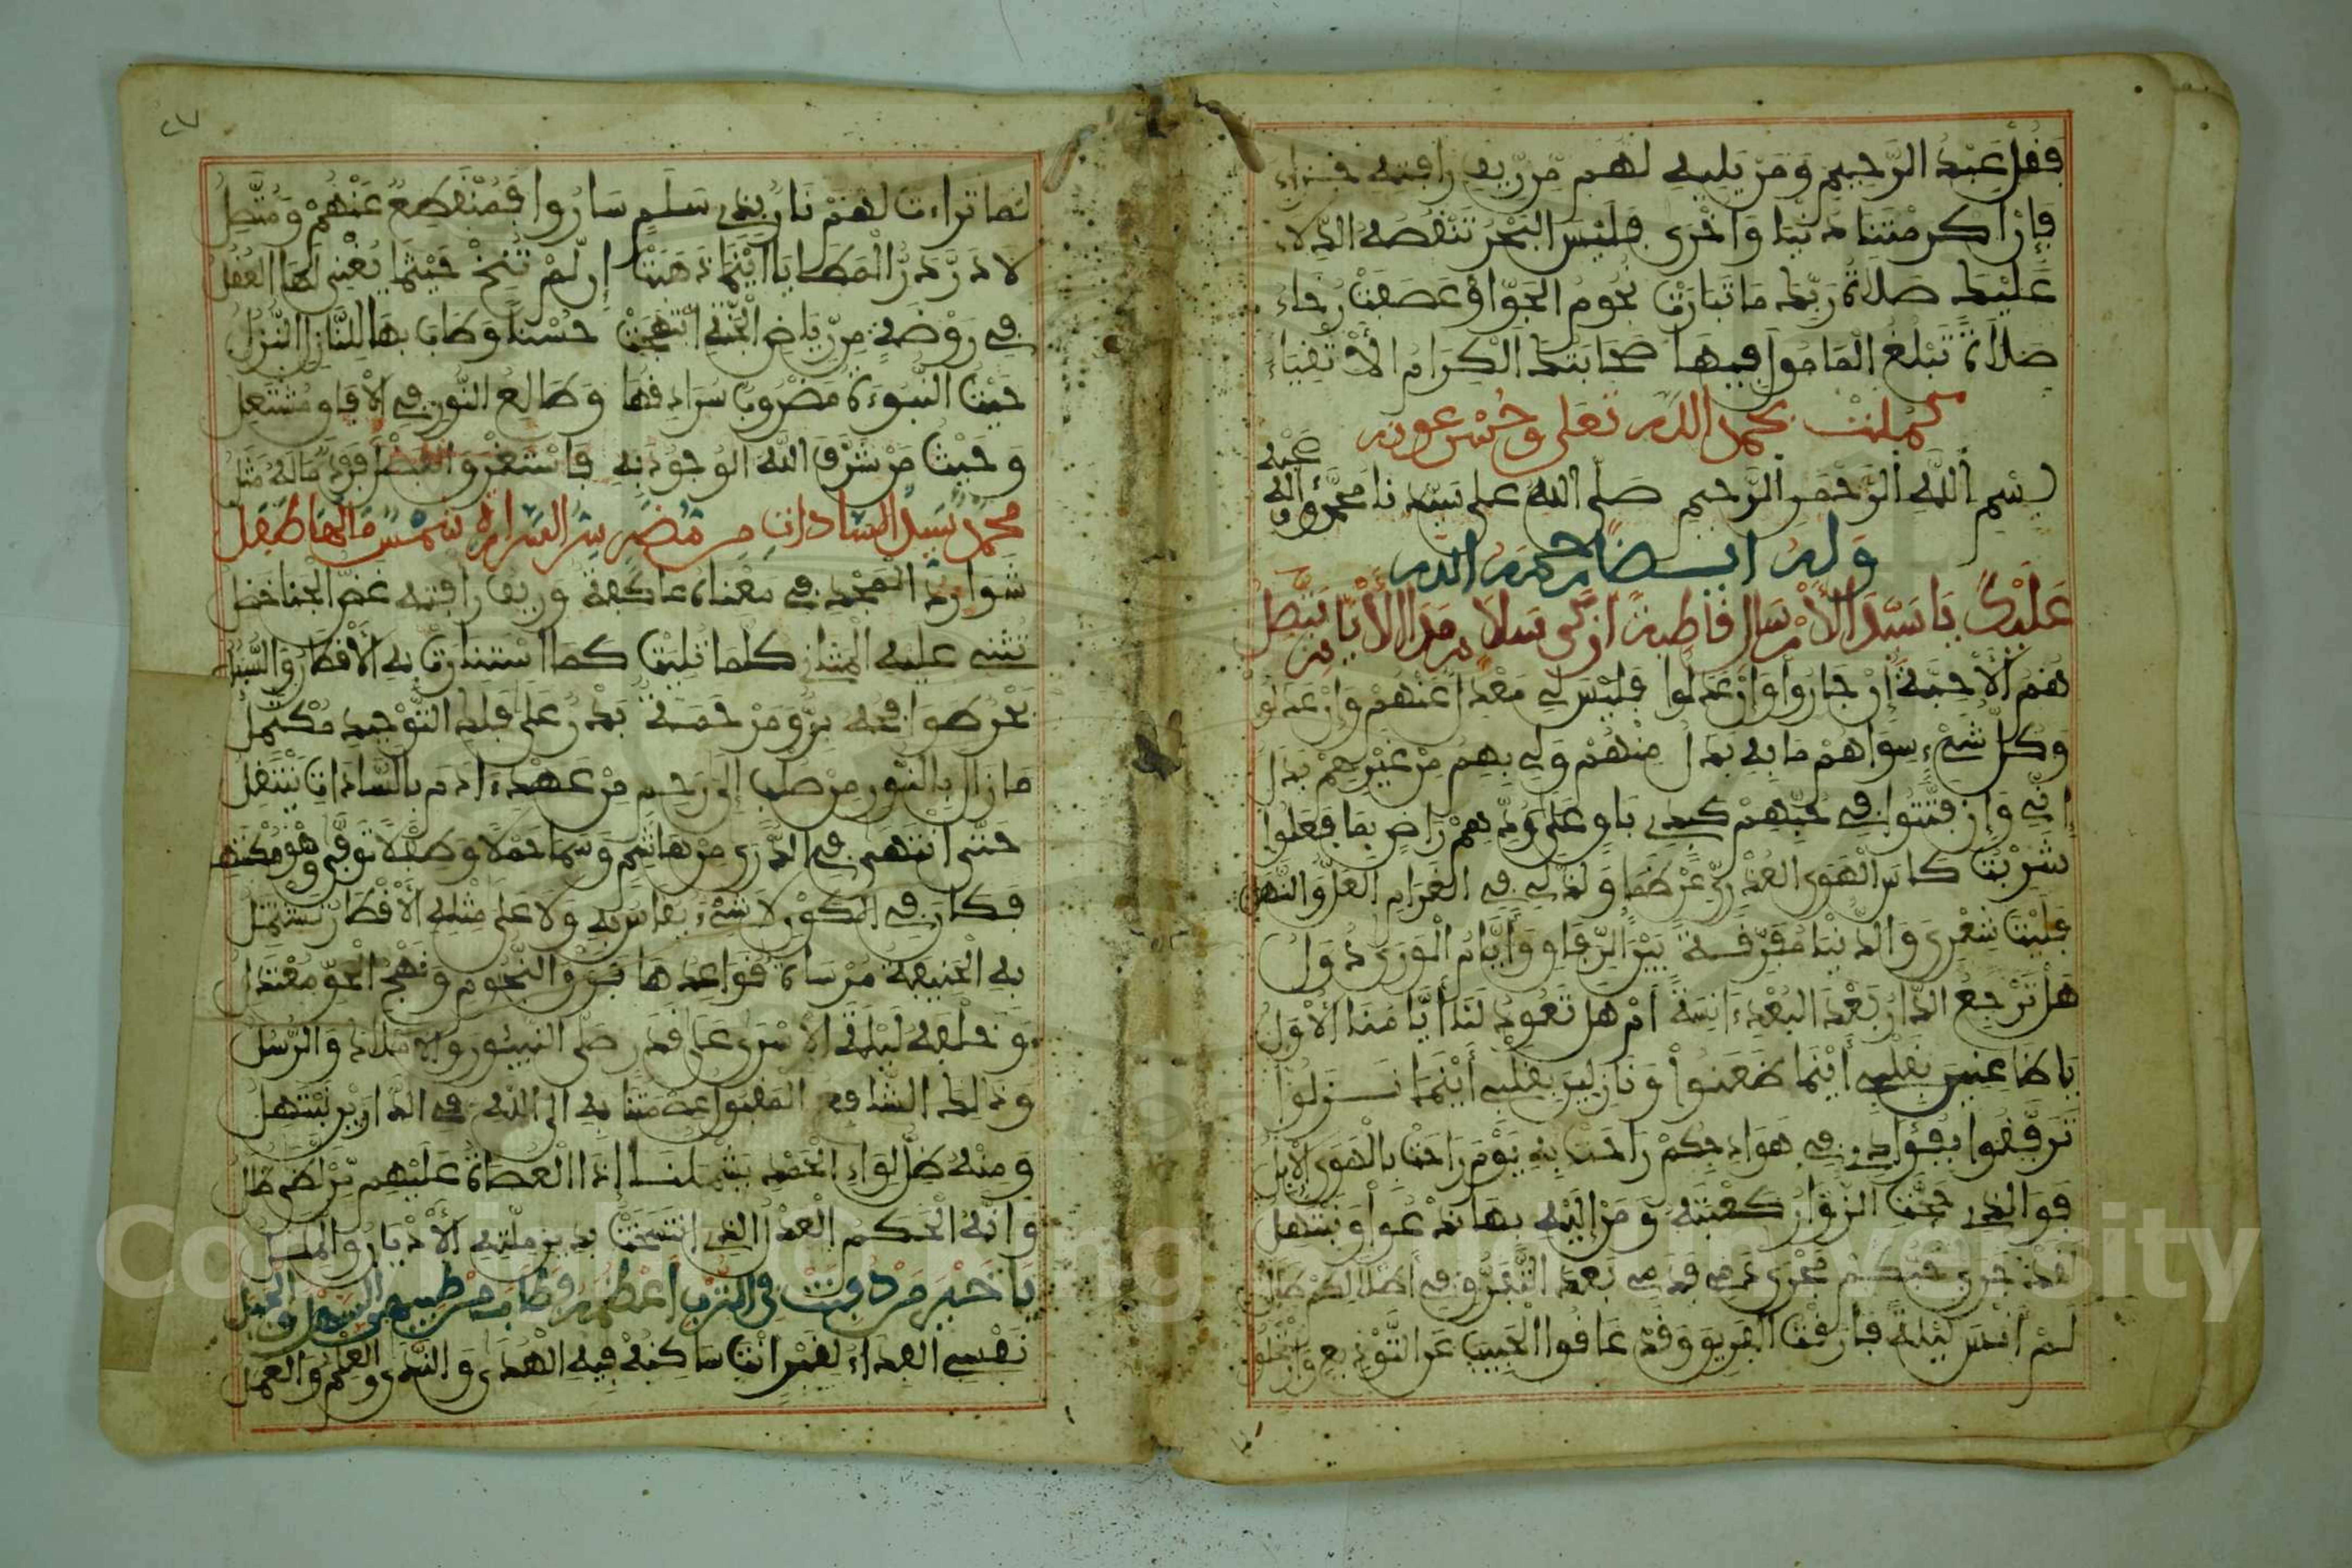 فقل عبد الرحيم ومن يليه لهم من ريف رافته
فإن اكرمتنا دنيا واخرى فليس البحر تنقصه الدلاء
عليك صلاة ربك ما تبارت نجوم الجو او عصفت رخاء
صلاة تبلغ المامول فيها صحابتك الكرام الأتقياء
كملت بحمد الله تعلى وحسن عونه
بسم الله الرحمن الرحيم صلى الله على سيدنا محمد وءاله وصحبه
وله ايضا رحمه الله
عليك يا سيد الارسال قاطبة ازكى سلام مدا الأيام يتصل
هم الأحبة إن جاروا وإن عدلوا فليس لي معدل عنهم وإن عدلوا
وكل شيء سواهم ما به بدل منهم ولي بهم من غيرهم بدل
إني وإن فتتوا في حبهم كبدي باق على ودهم راض بما فعلوا
شربت كاس الهوى العذري عن ظما ولذ لي في الغرام العل والنهل
فليت شعري والدنيا مفرقة بين الرفاق وأيام الورى دول
هل ترجع الدار بعد البعد ءانسة أم هل تعود لنا أيامنا الأول
يا ظاعنين بقلبي أينما ظعنوا ونازلين بقلبي أينما نزلوا
ترفقوا بفؤادي في هوادجكم راحت به يوم راحت بالهوى الابل
فوالذي حجت الزوار كعبته ومن إليه بها تدعوا وتبتهل
لقد جرى حبكم مجرى دمي فدمي بعد التفرق في اطلالكم طلل
لم أنس ليلة فارقت الفريق وقد عاقوا الحبيب عن التوديع وارتحلوا
لما تراءت لهم نار بذي سلم ساروا فمنقطع عنهم ومتصل
لا در در المطايا أينما ذهبت إن لم تنخ حيثما يغني لها العقل
في روضة من رياض الجنة ابتهجت حسنا وطاب بها للنازل النزل
حيث النبوءة مضروب سرادقها وطالع النور في الأفاق مشتعل
وحيث من شرف الله الوجود به فاستغرق الفضل فردا ماله مثل
محمد سيد السادات من مضر سر السرارة شمس مالها طفل
شوارد المجد في مغناه عاكفة وريف رافته غض الجنا خضل
تثنى عليه المثاني كلما تليت كما استنارت به الأقطار والسبل
بحر طوافحه بر ومرحمة بدر على فلك التوحيد مكتمل
ما زال بالنور من صلب إلى رحم من عهد ءادم بالسادات ينتقل
حتى انتهى في الذرى من هاشم وسما حملا وطفلا توفى وهو مكتهل
فكان في الكون لا شيء يقاس به ولا على مثله الأقطار تشتمل
به الحنيفة مرساة قواعدها فوق النجوم ونهج الحق معتدل
وخلفه ليلة الأسرى على قدر صلى النبيون والاملاك والرسل
وذلك الشافع المقبول عصمتنا به الى الله في الدارين نبتهل
ومنه ظل لواء الحمد يشملنا إذا العصاة عليهم من لظى ظلل
وانه الحكم العدل الذي انتسخت بدين ملته الأديان والملل
يا خير من دفنت في الترب اعظمه فطاب من طيبهن السهل والجبل
نفسي الفداء لقبر انت ساكنه فيه الهدى والندى والعلم والعمل